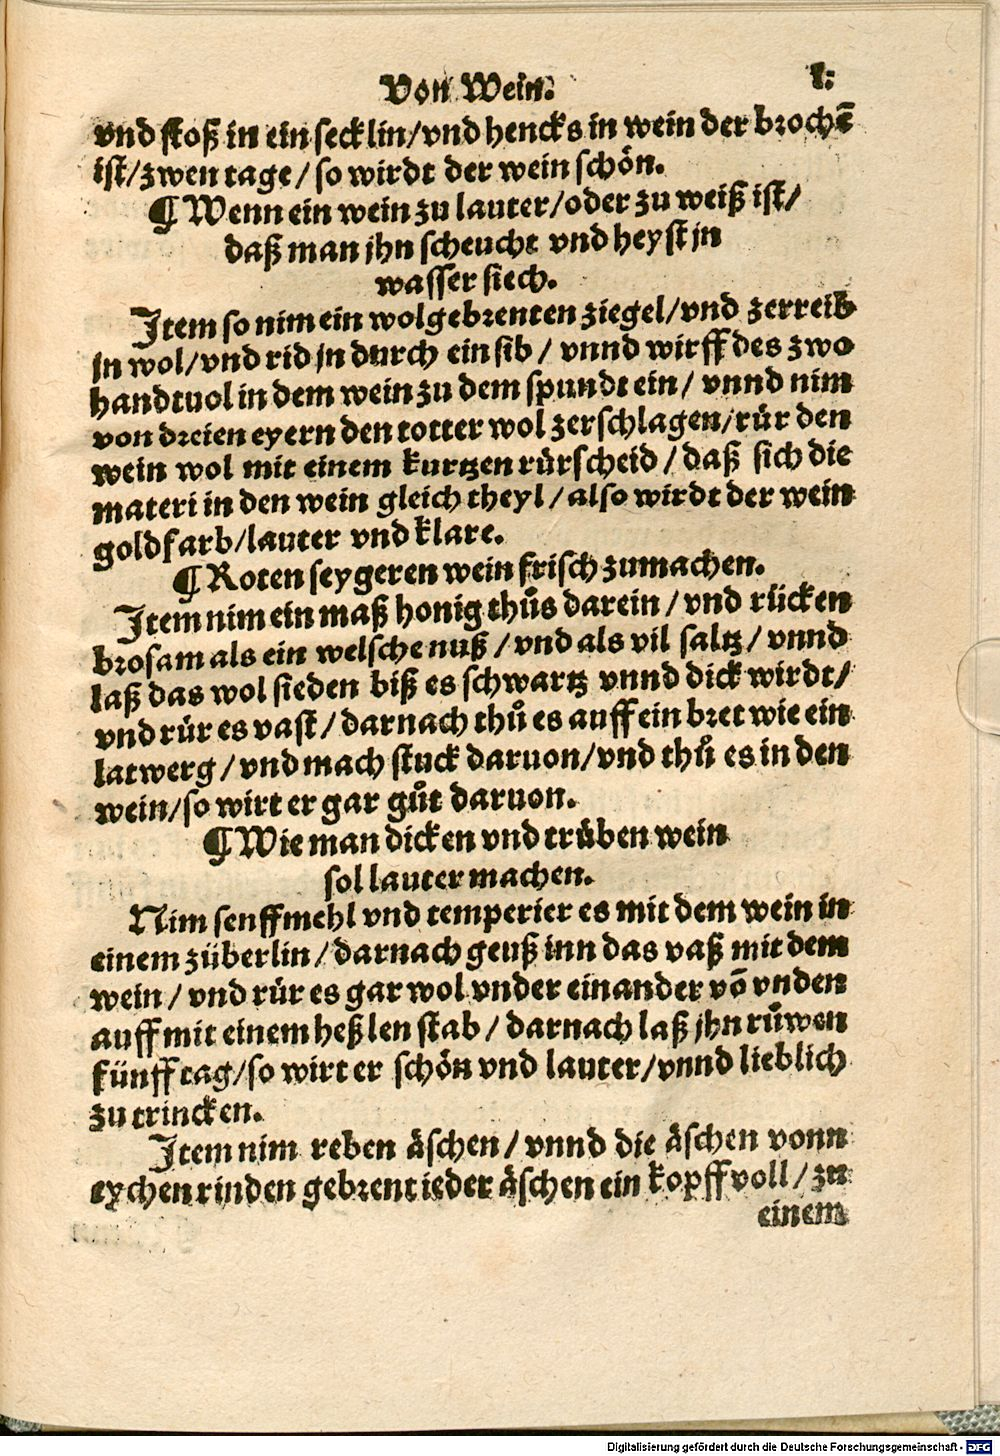 Von Wein. l.
vnd stoß in ein secklin/vnd hencks in wein der brochē
ist/zwen tage/so wirdt der wein schön.
¶ Wenn ein wein zu lauter/oder zu weiß ist/
daß man jhn scheucht vnd heyst jn
wasser siech.
Item so nim ein wolgebrenten ziegel/vnd zerreib
jn wol/vnd rid jn durch ein sib/vnnd wirff des zwo
handtuol in dem wein zu dem spundt ein/vnnd nim
von dreien eyern den totter wol zerschlagen/rür den
wein wol mit einem kurtzen rürscheid/daß sich die
materi in den wein gleich theyl/also wirdt der wein
goldfarb/lauter vnd klare.
¶ Roten seygeren wein frisch zumachen.
Item nim ein maß honig thůs darein/vnd rücken
brosam als ein welsche nuß/vnd als vil saltz/vnnd
laß das wol sieden biß es schwartz vnnd dick wirdt/
vnd rür es vast/darnach thů es auff ein bret wie ein
latwerg/vnd mach stuck daruon/vnd thů es in den
wein/so wirt er gar gůt daruon.
¶ Wie man dicken vnd trüben wein
sol lauter machen.
Nim senffmehl vnd temperier es mit dem wein in
einem züberlin/darnach geuß inn das vaß mit dem
wein/vnd rür es gar wol vnder einander vō vnden
auff mit einem heßlen stab/darnach laß jhn růwen
fünff tag/so wirt er schön vnd lauter/vnnd lieblich
zu trincken.
Item nim reben äschen/vnnd die äschen vonn
eychen rinden gebrent ieder äschen ein kopff voll/zu
einem
Digitalisierung gefördert durch die Deutsche Forschungsgemeinschaft - DFG